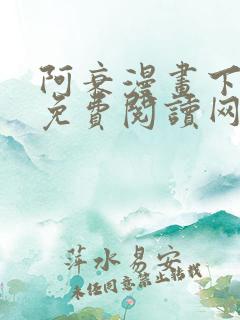 阿衰漫畫下
免費閱讀网
萍水易安
未经同意禁止转载